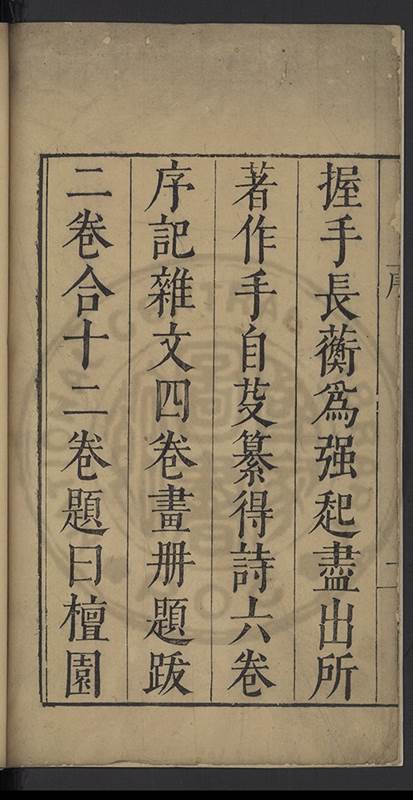 序
二
握手長蘅爲强起盡出所
著作手自芟纂得詩六卷
序記雜文四卷畫册題跋
二卷合十二卷題曰檀園